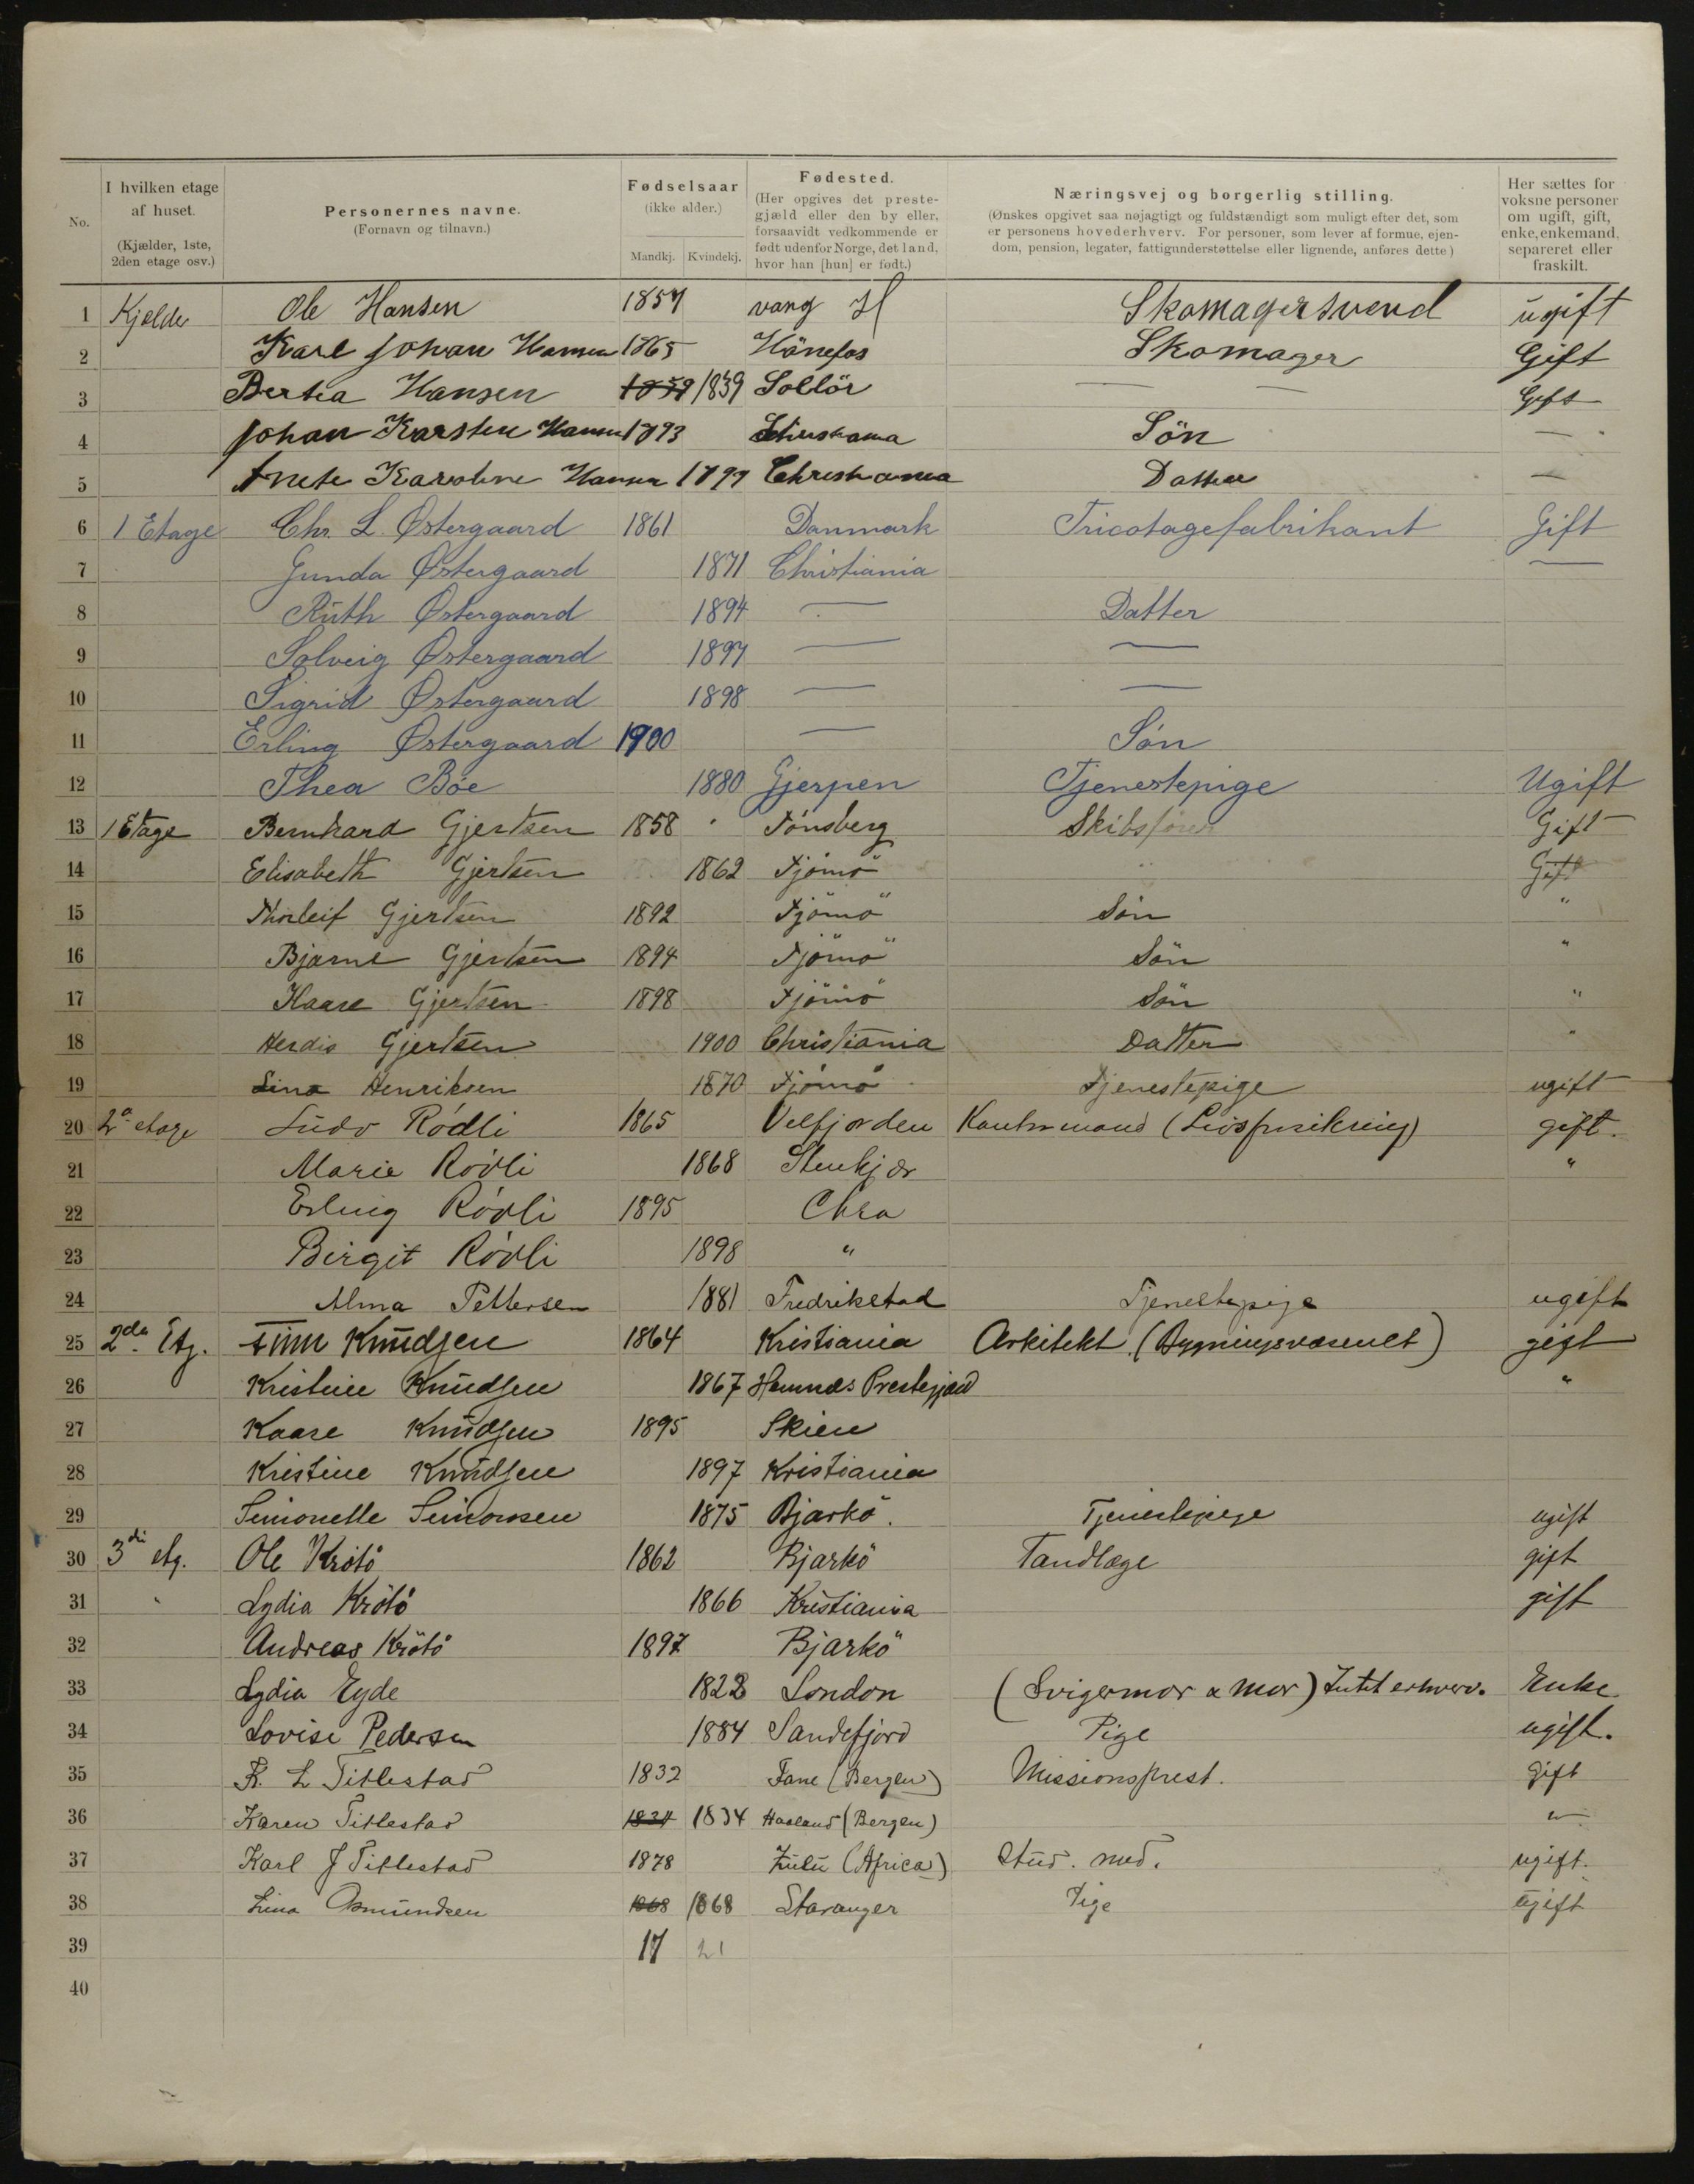 No.
I hvilken etage af huset. (Kjælder, 1ste, 2den etage osv.)
Personernes navne. (Fornavn og tilnavn.)
Fødselsaar (ikke alder.) Mandkj. Kvindekj.
Fødested. (Her opgives det prestegjæld eller den by eller, forsaavidt vedkommende er født udenfor Norge, det land, hvor han [hun] er født.)
Næringsvej og borgerlig stilling. (Ønskes opgivet saa nøjagtigt og fuldstændigt som muligt efter det, som er personens hovederhverv. For personer, som lever af formue, ejendom, pension, legater, fattigunderstøttelse eller lignende, anføres dette)
Her sættes for voksne personer om ugift, gift, enke, enkemand, separeret eller fraskilt.
1 Kjelder Ole Hansen 1857 vang H Skomagersvend ugift
2 Karl Johan Hansen 1865 Hönefos Skomager Gift
3 Bertea Hansen 1839 1839 Sollör — — Gift
4 Johan Karsten Hansen 1893 Christiania Sön —
5 Anete Karoline Hansen 1899 Christiania Datter —
6 1 Etage Chr. L. Østergaard 1861 Danmark Tricotagefabrikant Gift
7 Gunda Østergaard 1871 Christiania —
8 Ruth Østergaard 1894 — Datter
9 Solveig Østergaard 1897 — —
10 Sigrid Østergaard 1898 — —
11 Erling Østergaard 1900 — Søn
12 Thea Bøe 1880 Gjerpen Tjenestepige Ugift
13 1 Etage Bernhard Gjertsen 1858 Tønsberg Skibsfører Gift
14 Elisabeth Gjertsen 1862 Tjömö " Gift
15 Thorleif Gjertsen 1892 Tjömö Sön "
16 Bjarne Gjertsen 1894 Tjömö Sön "
17 Kaare Gjertsen 1898 Tjömö Sön "
18 Herdis Gjertsen 1900 Christiania Datter "
19 Lina Henriksen 1870 Tjömö Tjenestepige ugift
20 2a etage Ludv Rödli 1865 Velfjorden (Livsforsikring) gift.
21 Marie Rödli 1868 Stenkjær "
22 Erling Rödli 1895 Chra
23 Birgit Rödli 1898 "
24 Alma Pettersen 1881 Fredrikstad Tjenestepige ugift
25 2den Etg. Finn Knudsen 1864 Kristiania Arkitekt (Bygningsvæsenet) gift
26 Kristine Knudsen 1867 Hemnes Prestegjæld "
27 Kaare Knudsen 1895 Skien
28 Kristine Knudsen 1897 Kristiania
29 Simonette Simonsen 1875 Bjarkö. Tjenestepige ugift
30 3die etg. Ole Krötö 1862 Bjarkö Tandlæge gift
31 " Lydia Krötö 1866 Kristiania gift
32 Andreas Krötö 1897 Bjarkö
33 Lydia Eyde 1828 London (Svigermor & mor) Intet erhverv. Enke
34 Lovise Pedersen 1884 Sandefjord Pige ugift.
35 K. L Titlestad 1832 Fane (Bergen) Missionsprest. gift
36 Karen Titlestad 1834 1834 Haaland (Bergen) "
37 Karl J Titlestad 1878 Zulu (Africa) Stud. med. ugift.
38 Lina Osmundsen 1868 1868 Stavanger Pige Ugift
39 17 21
40